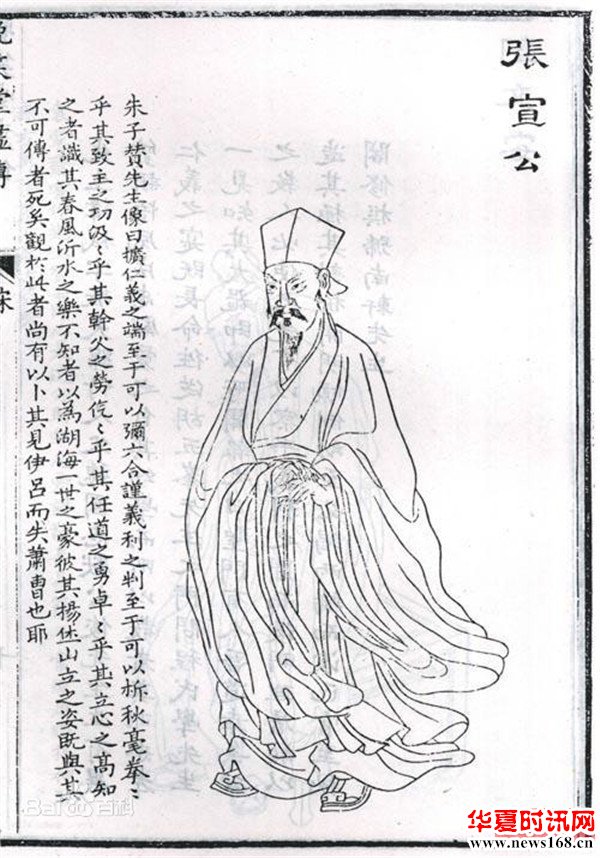 張宣公
朱子贊先生像曰擴仁義之端至于可以彌六合謹義利之判至于可以析秋毫拳〻
乎其致主之功汲〻乎其幹父之勞仡〻乎其任道之勇卓〻乎其立心之高知
之者識其春風沂水之樂不知者以為湖海一世之豪彼其揚休山立之姿既與其
不可傳者死矣觀於此者尚有以卜其見伊呂而失蕭曹也耶
Bai百科
华夏时讯网
www.news168.cn